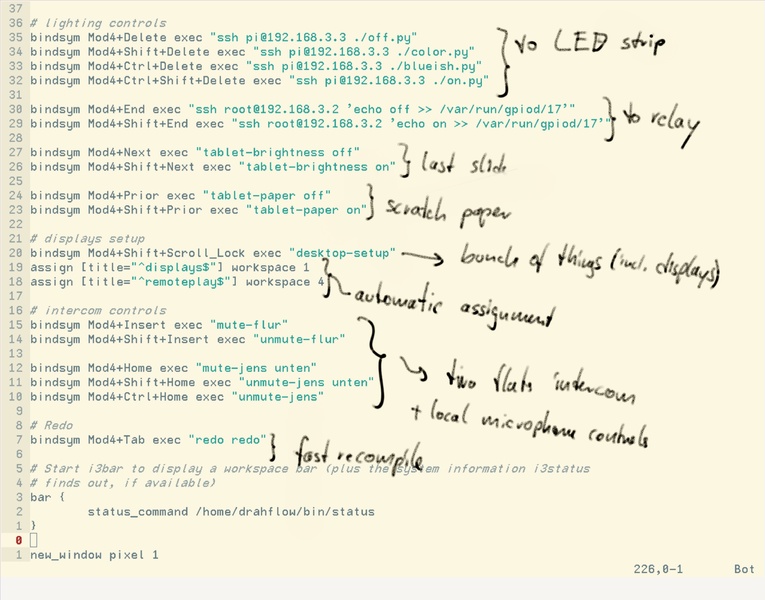 37
36 # lighting controls
35 bindsym Mod4+Delete exec "ssh pi@192.168.3.3 ./off.py"
34 bindsym Mod4+Shift+Delete exec "ssh pi@192.168.3.3 ./color.py"
33 bindsym Mod4+Ctrl+Delete exec "ssh pi@192.168.3.3 ./blueish.py"
32 bindsym Mod4+Ctrl+Shift+Delete exec "ssh pi@192.168.3.3 ./on.py"
to LED strip
31
30 bindsym Mod4+End exec "ssh root@192.168.3.2 'echo off >> /var/run/gpiod/17'"
29 bindsym Mod4+Shift+End exec "ssh root@192.168.3.2 'echo on >> /var/run/gpiod/17'"
to relay
28
27 bindsym Mod4+Next exec "tablet-brightness off"
26 bindsym Mod4+Shift+Next exec "tablet-brightness on"
last slide
25
24 bindsym Mod4+Prior exec "tablet-paper off"
23 bindsym Mod4+Shift+Prior exec "tablet-paper on"
scratch paper
22
21 # displays setup
20 bindsym Mod4+Shift+Scroll_Lock exec "desktop-setup"
bunch of things (incl. displays)
19 assign [title="^displays$"] workspace 1
18 assign [title="^remoteplay$"] workspace 4
automatic assignment
17
16 # intercom controls
15 bindsym Mod4+Insert exec "mute-flur"
14 bindsym Mod4+Shift+Insert exec "unmute-flur"
13
12 bindsym Mod4+Home exec "mute-jens unten"
11 bindsym Mod4+Shift+Home exec "unmute-jens unten"
10 bindsym Mod4+Ctrl+Home exec "unmute-jens"
two flats intercom
+ local microphone controls
9
8 # Redo
7 bindsym Mod4+Tab exec "redo redo"
fast recompile
6
5 # Start i3bar to display a workspace bar (plus the system information i3status
4 # finds out, if available)
3 bar {
2 status_command /home/drahflow/bin/status
1 }
0
1 new_window pixel 1
226,0-1 Bot